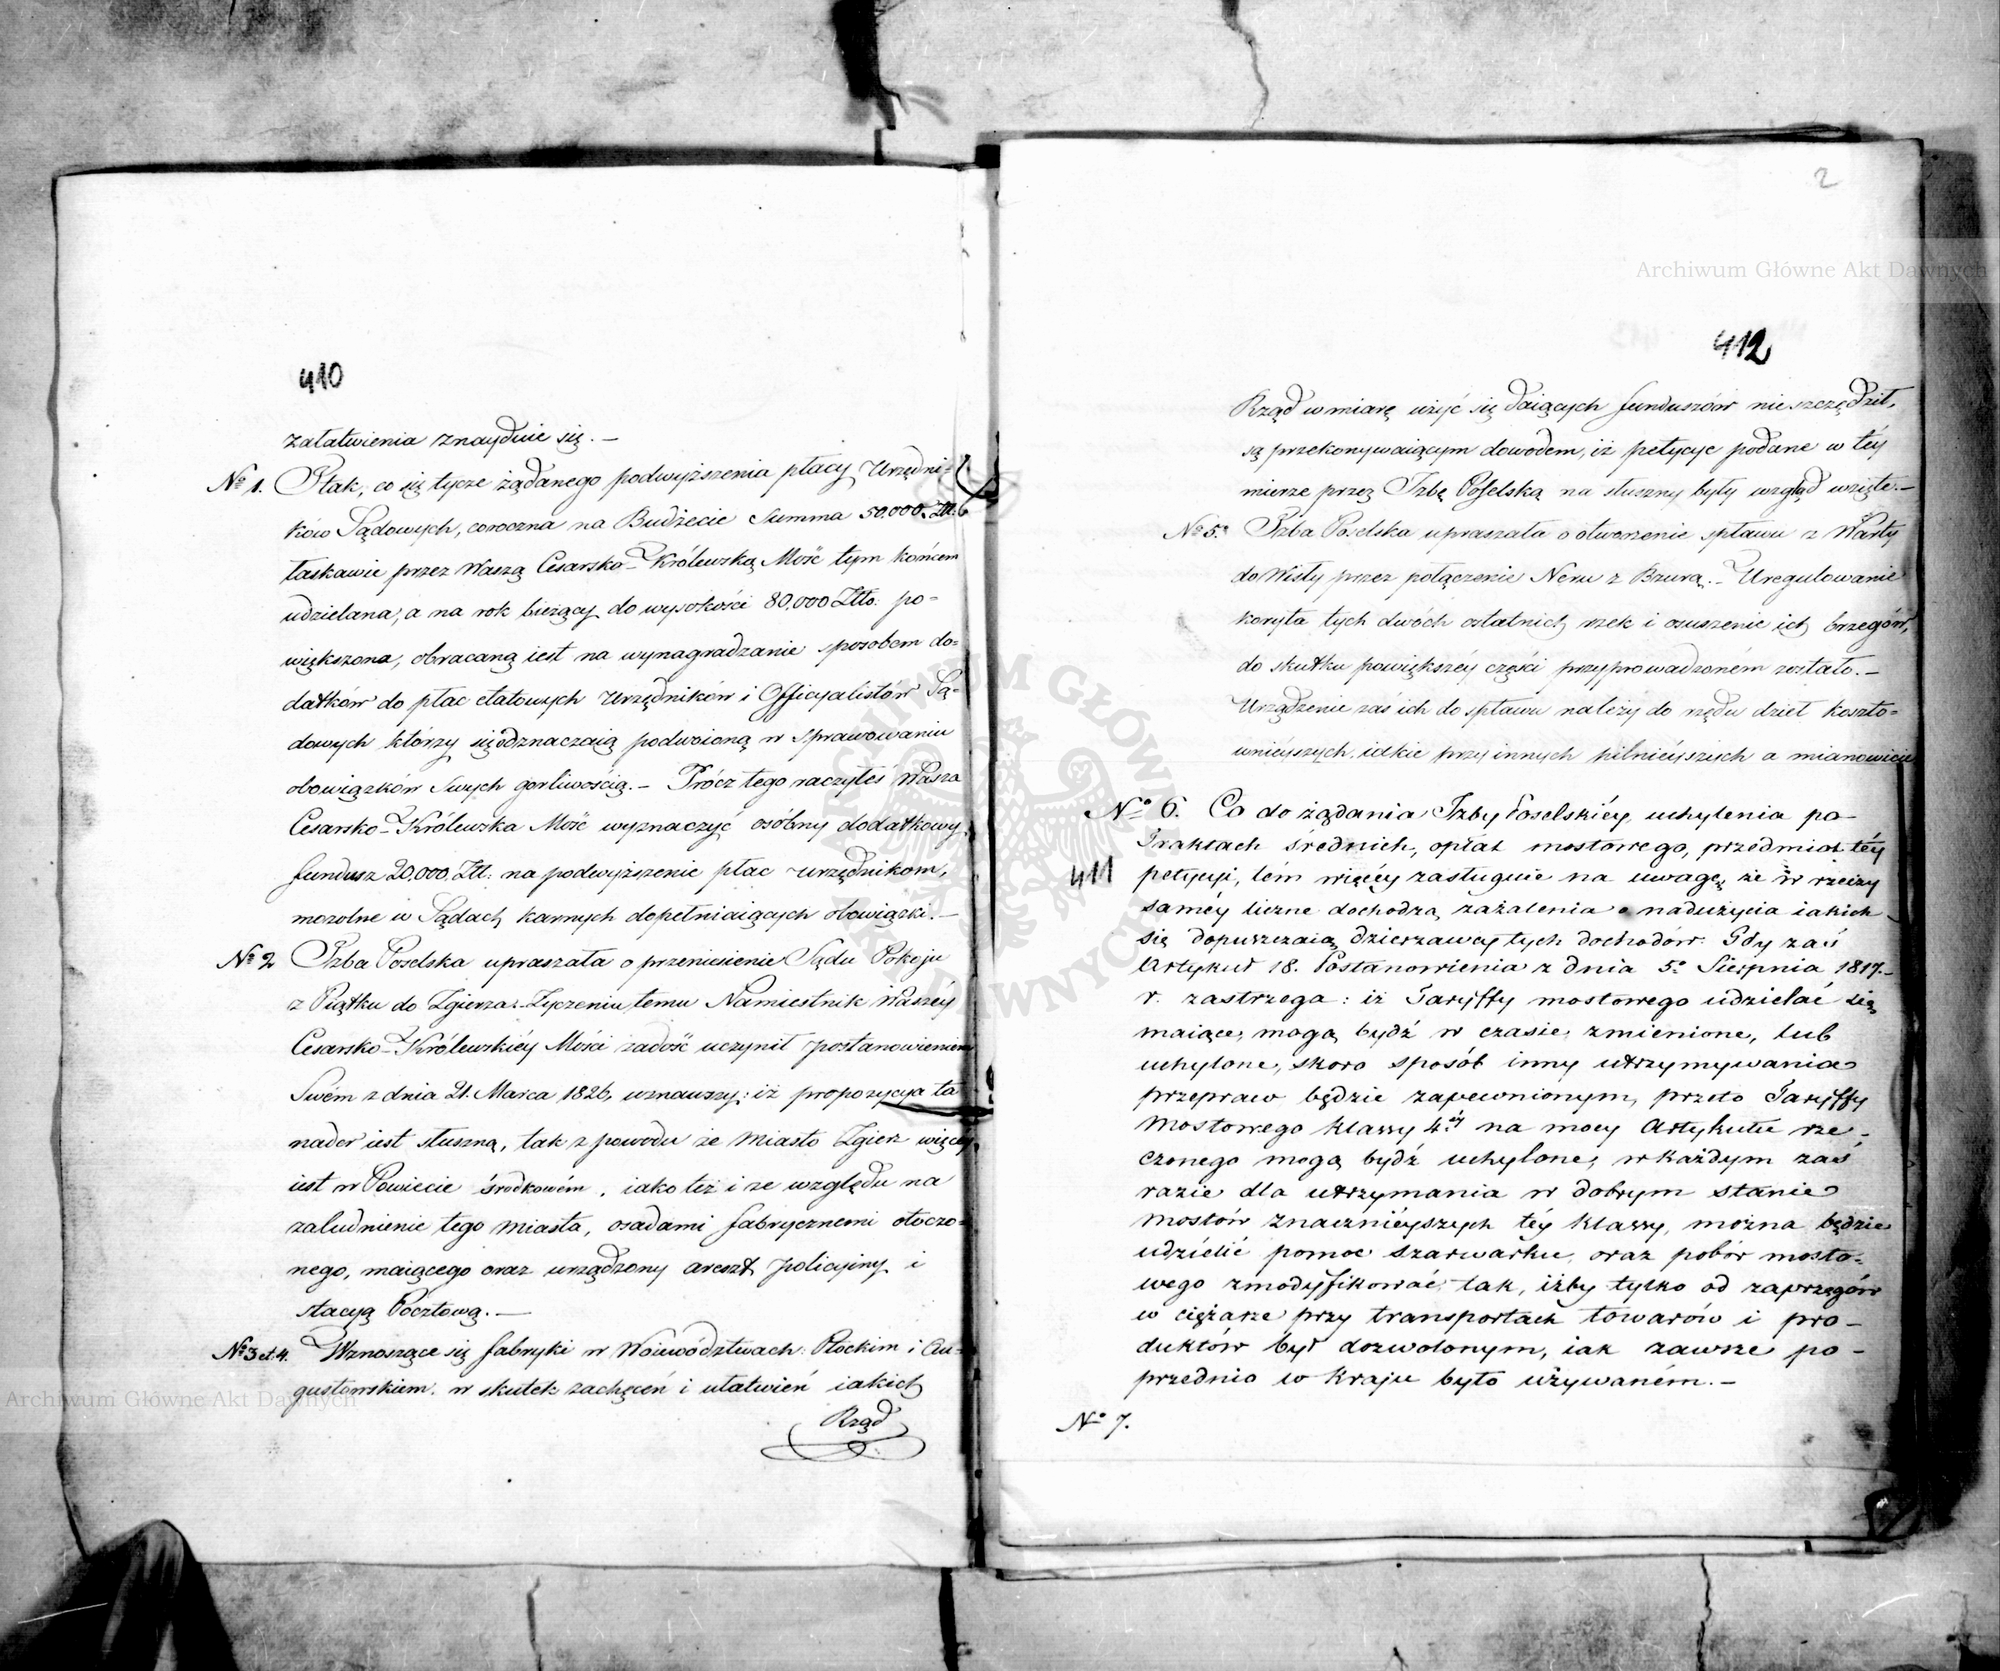 410
załatwienia znayduie się. —
№ 1. I tak, co się tycze żądanego podwyższenia płacy Urzędni-
ków Sądowych, coroczna na Budżecie Summa 50.000 Ztt:
łaskawie przez Waszą Cesarsko-Królewską Mość tym końcem
udzielana, a na rok bieżący do wysokości 80,000 Ztto: po-
większona, obracaną iest na wynagradzanie sposobem do-
datków do płac etatowych Urzędników i Officyalistów Są-
dowych którzy się odznaczaią podwoioną w sprawowaniu
obowiązków Swych gorliwością. — Prócz tego raczyłeś Wasza
Cesarsko-Królewska Mość wyznaczyć osóbny dodatkowy
fundusz 20.000 Ztt: na podwyższenie płac urzędnikom,
mozolne w Sądach karnych dopełniaiących obowiązki. —
№ 2 Izba Poselska upraszała o przeniesienie Sądu Pokoju
z Piątku do Zgierza. - Życzeniu temu Namiestnik Waszéy
Cesarsko-Królewskiéy Mości zadość uczynił postanowieniem
Swém z dnia 21. Marca 1826, uznawszy: iż propozycya ta
nader iest słuszną, tak z powodu że Miasto Zgierz więcey
iest w Powiecie środkowém, iako też i ze względu na
zaludnienie tego Miasta, osadami fabrycznemi otoczo-
nego, maiącego oraz urządzony areszt policyiny i
stacyą Pocztową. —
№ 3 et 4. Wznoszące się fabryki w Woiewództwach: Płockim i Au-
gustowskiem. w skutek zachęceń i ułatwień iakich
Rząd
2
412
Rząd w miarę użyć się daiących funduszów nie szczędził,
są przekonywaiącym dowodem, iż petycye podane w téy
mierze przez Izbę Poselską na słuszny były wzgląd wzięte. —
№ 5. Izba Poselska upraszała o otworzenie spławu z Warty
do Wisły przez połączenie Neru z Bzurą. - Uregulowanie
koryta tych dwóch ostatnich rzek i osuszenie ich brzegów,
do skutku powiększéy części przyprowadzoném zostało. —
Urządzenie zaś ich do spławu należy do rzędu dzieł koszto-
wnieyszych, iakie przy innych pilnieyszych a mianowicie
№ 6. Co do żądania Izby Poselskiéy, uchylenia po
Traktach średnich, opłat mostowego, przedmiot téy
411 petycyi, tém więcéy zasługuie na uwagę, że w rzeczy
saméy liczne dochodzą zażalenia o nadużycia iakich
się dopuszczaią dzierżawcy tych dochodów. Gdy zaś
Artykuł 18. Postanowienia z dnia 5º Sierpnia 1817.
r. zastrzega: iż Taryffy mostowego udzielać się
maiące, mogą bydź w czasie zmienione, lub
uchylone, skoro sposób inny utrzymywania
przepraw będzie zapewnionym, przeto Taryffy
Mostowego klassy 4éy na mocy Artykułu rze-
czonego mogą bydź uchylone, w każdym zaś
razie dla utrzymania w dobrym stanie
mostów znacznieyszych téy klassy, można będzie
udzielić pomoc szarwarku, oraz pobór mosto-
wego zmodyfikować tak, iżby tylko od zaprzęgów
w ciężarze przy transportach towarów i pro-
duktów był dozwolonym, iak zawsze po-
przednio w kraju było używaném. —
№ 7.
Archiwum Główne Akt Dawnych
Archiwum Główne Akt Dawnych
ARCHIWUM GŁÓWNE AKT DAWNYCH